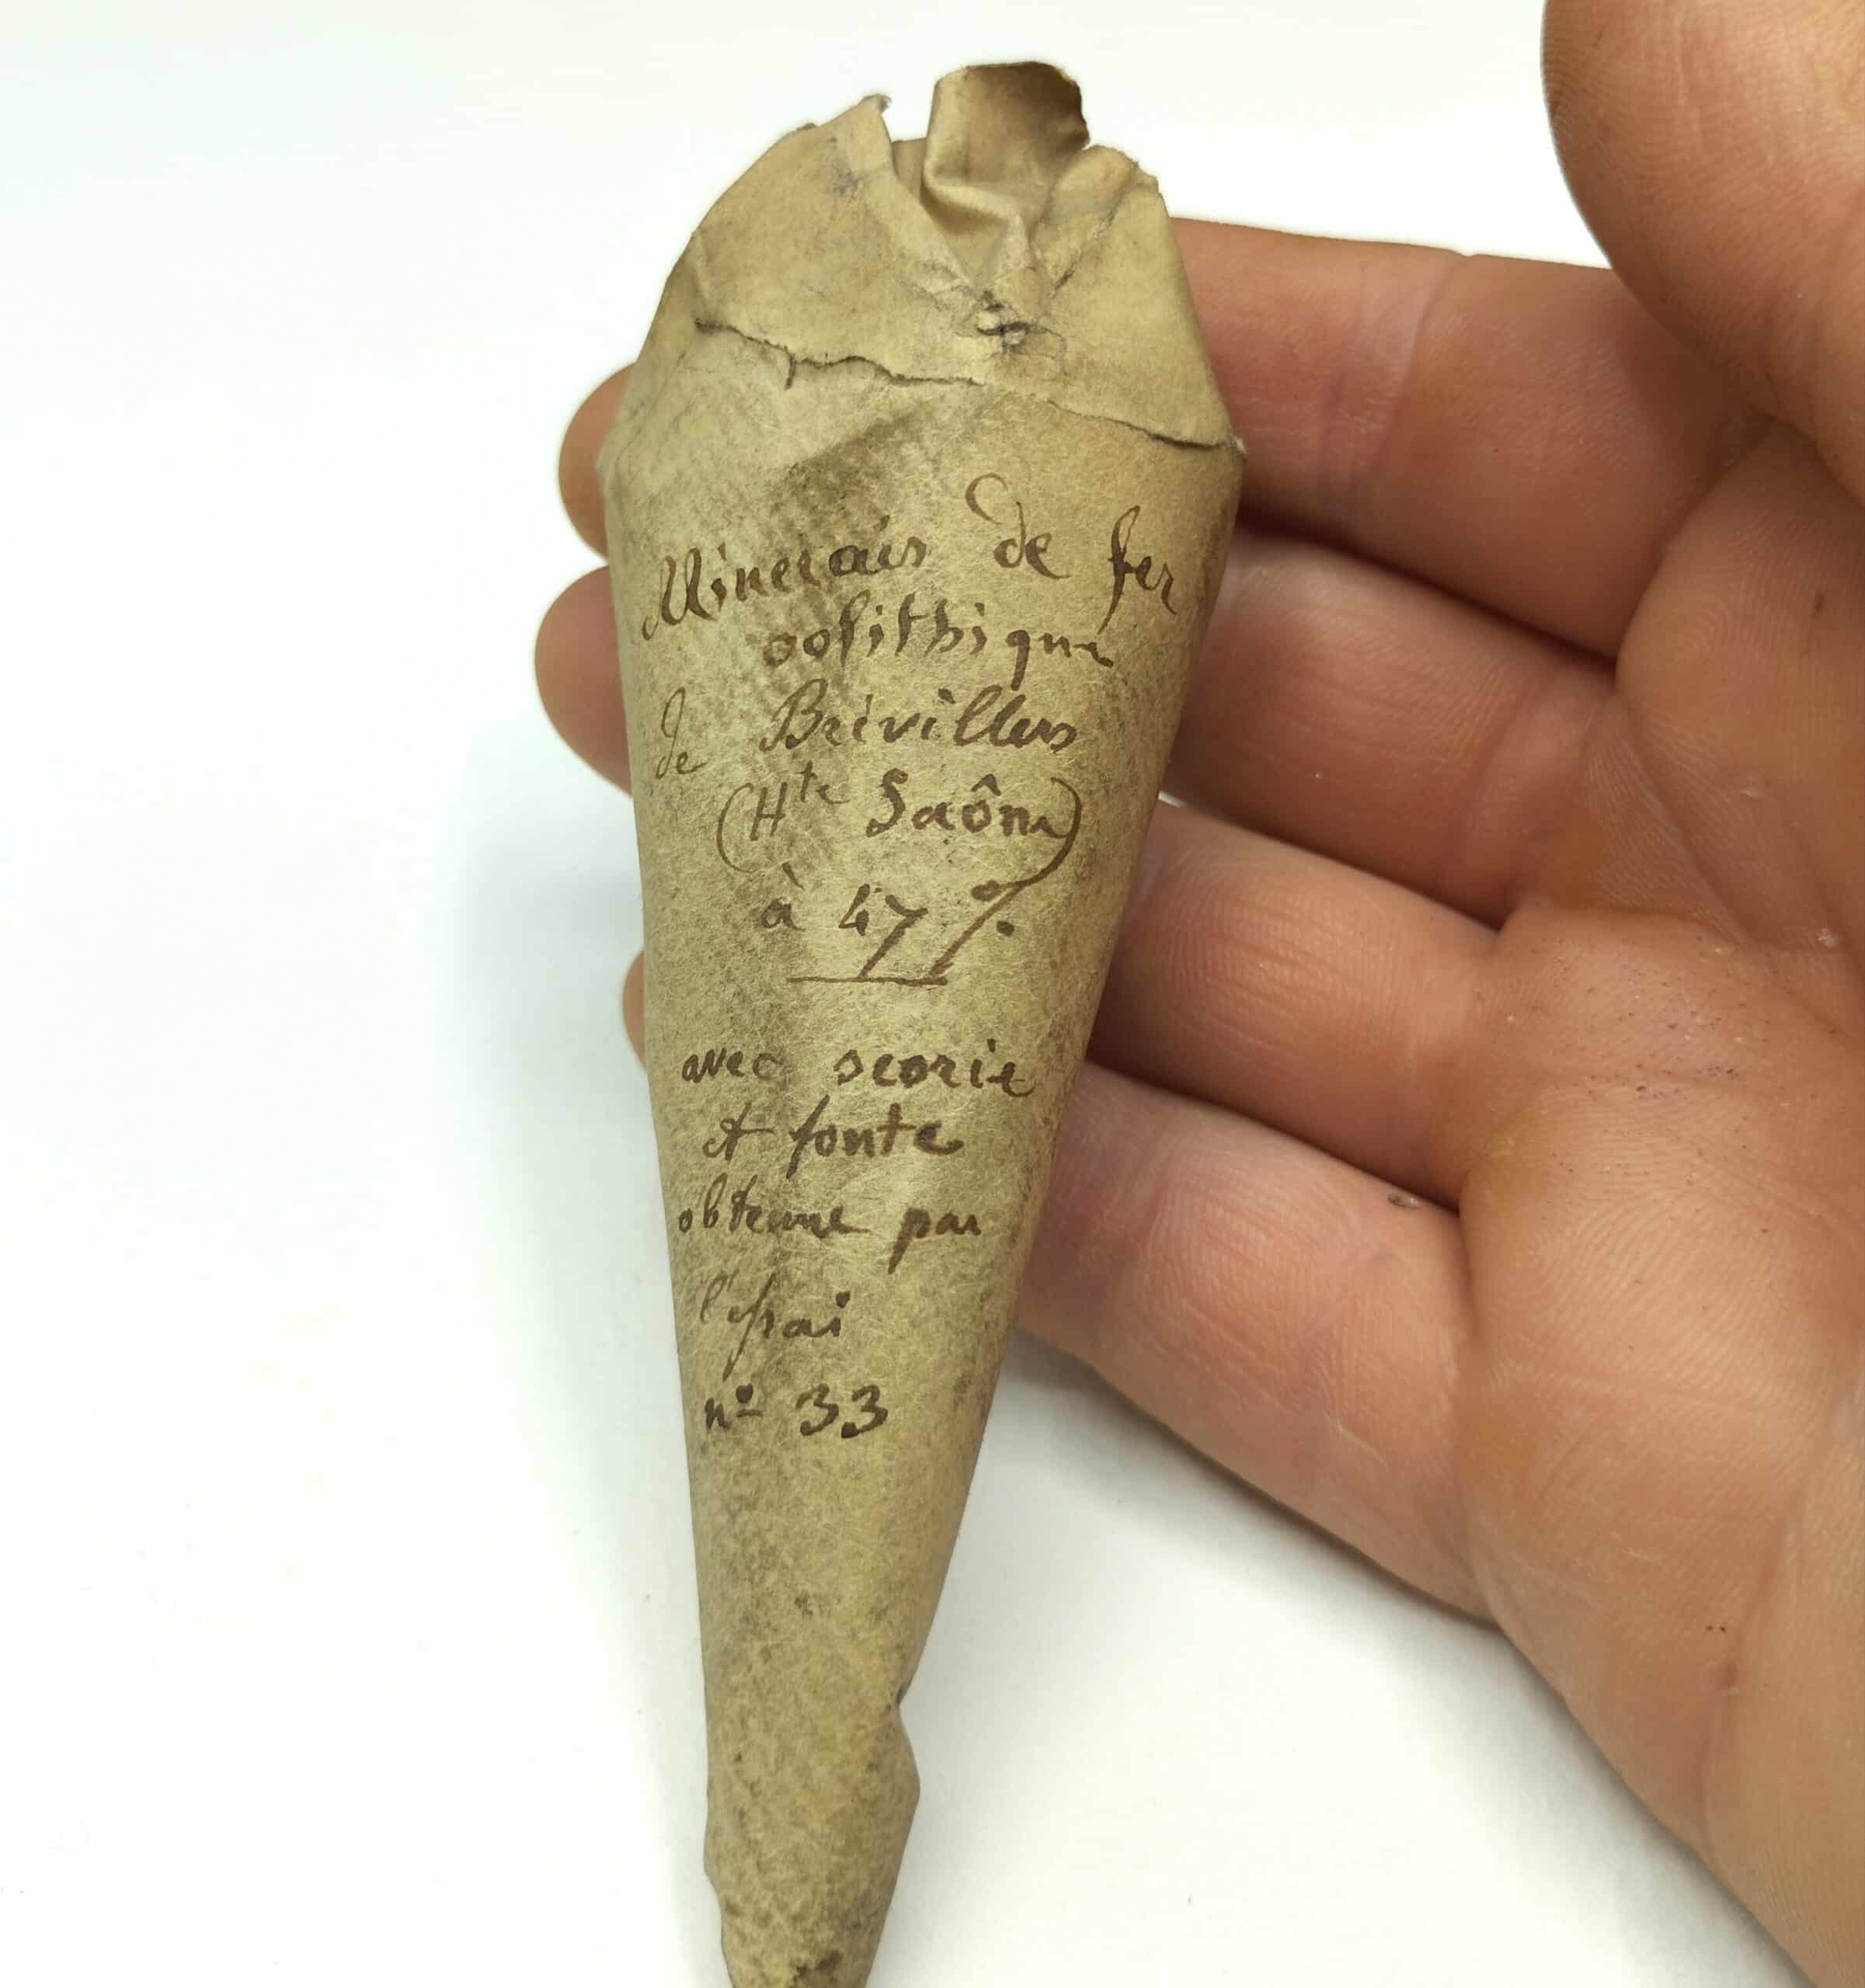 Minerais de fer
oolithique
de Brévillers
(Hte Saône)
à 47 %
avec scorie
et fonte
obtenue par
l'essai
nº 33